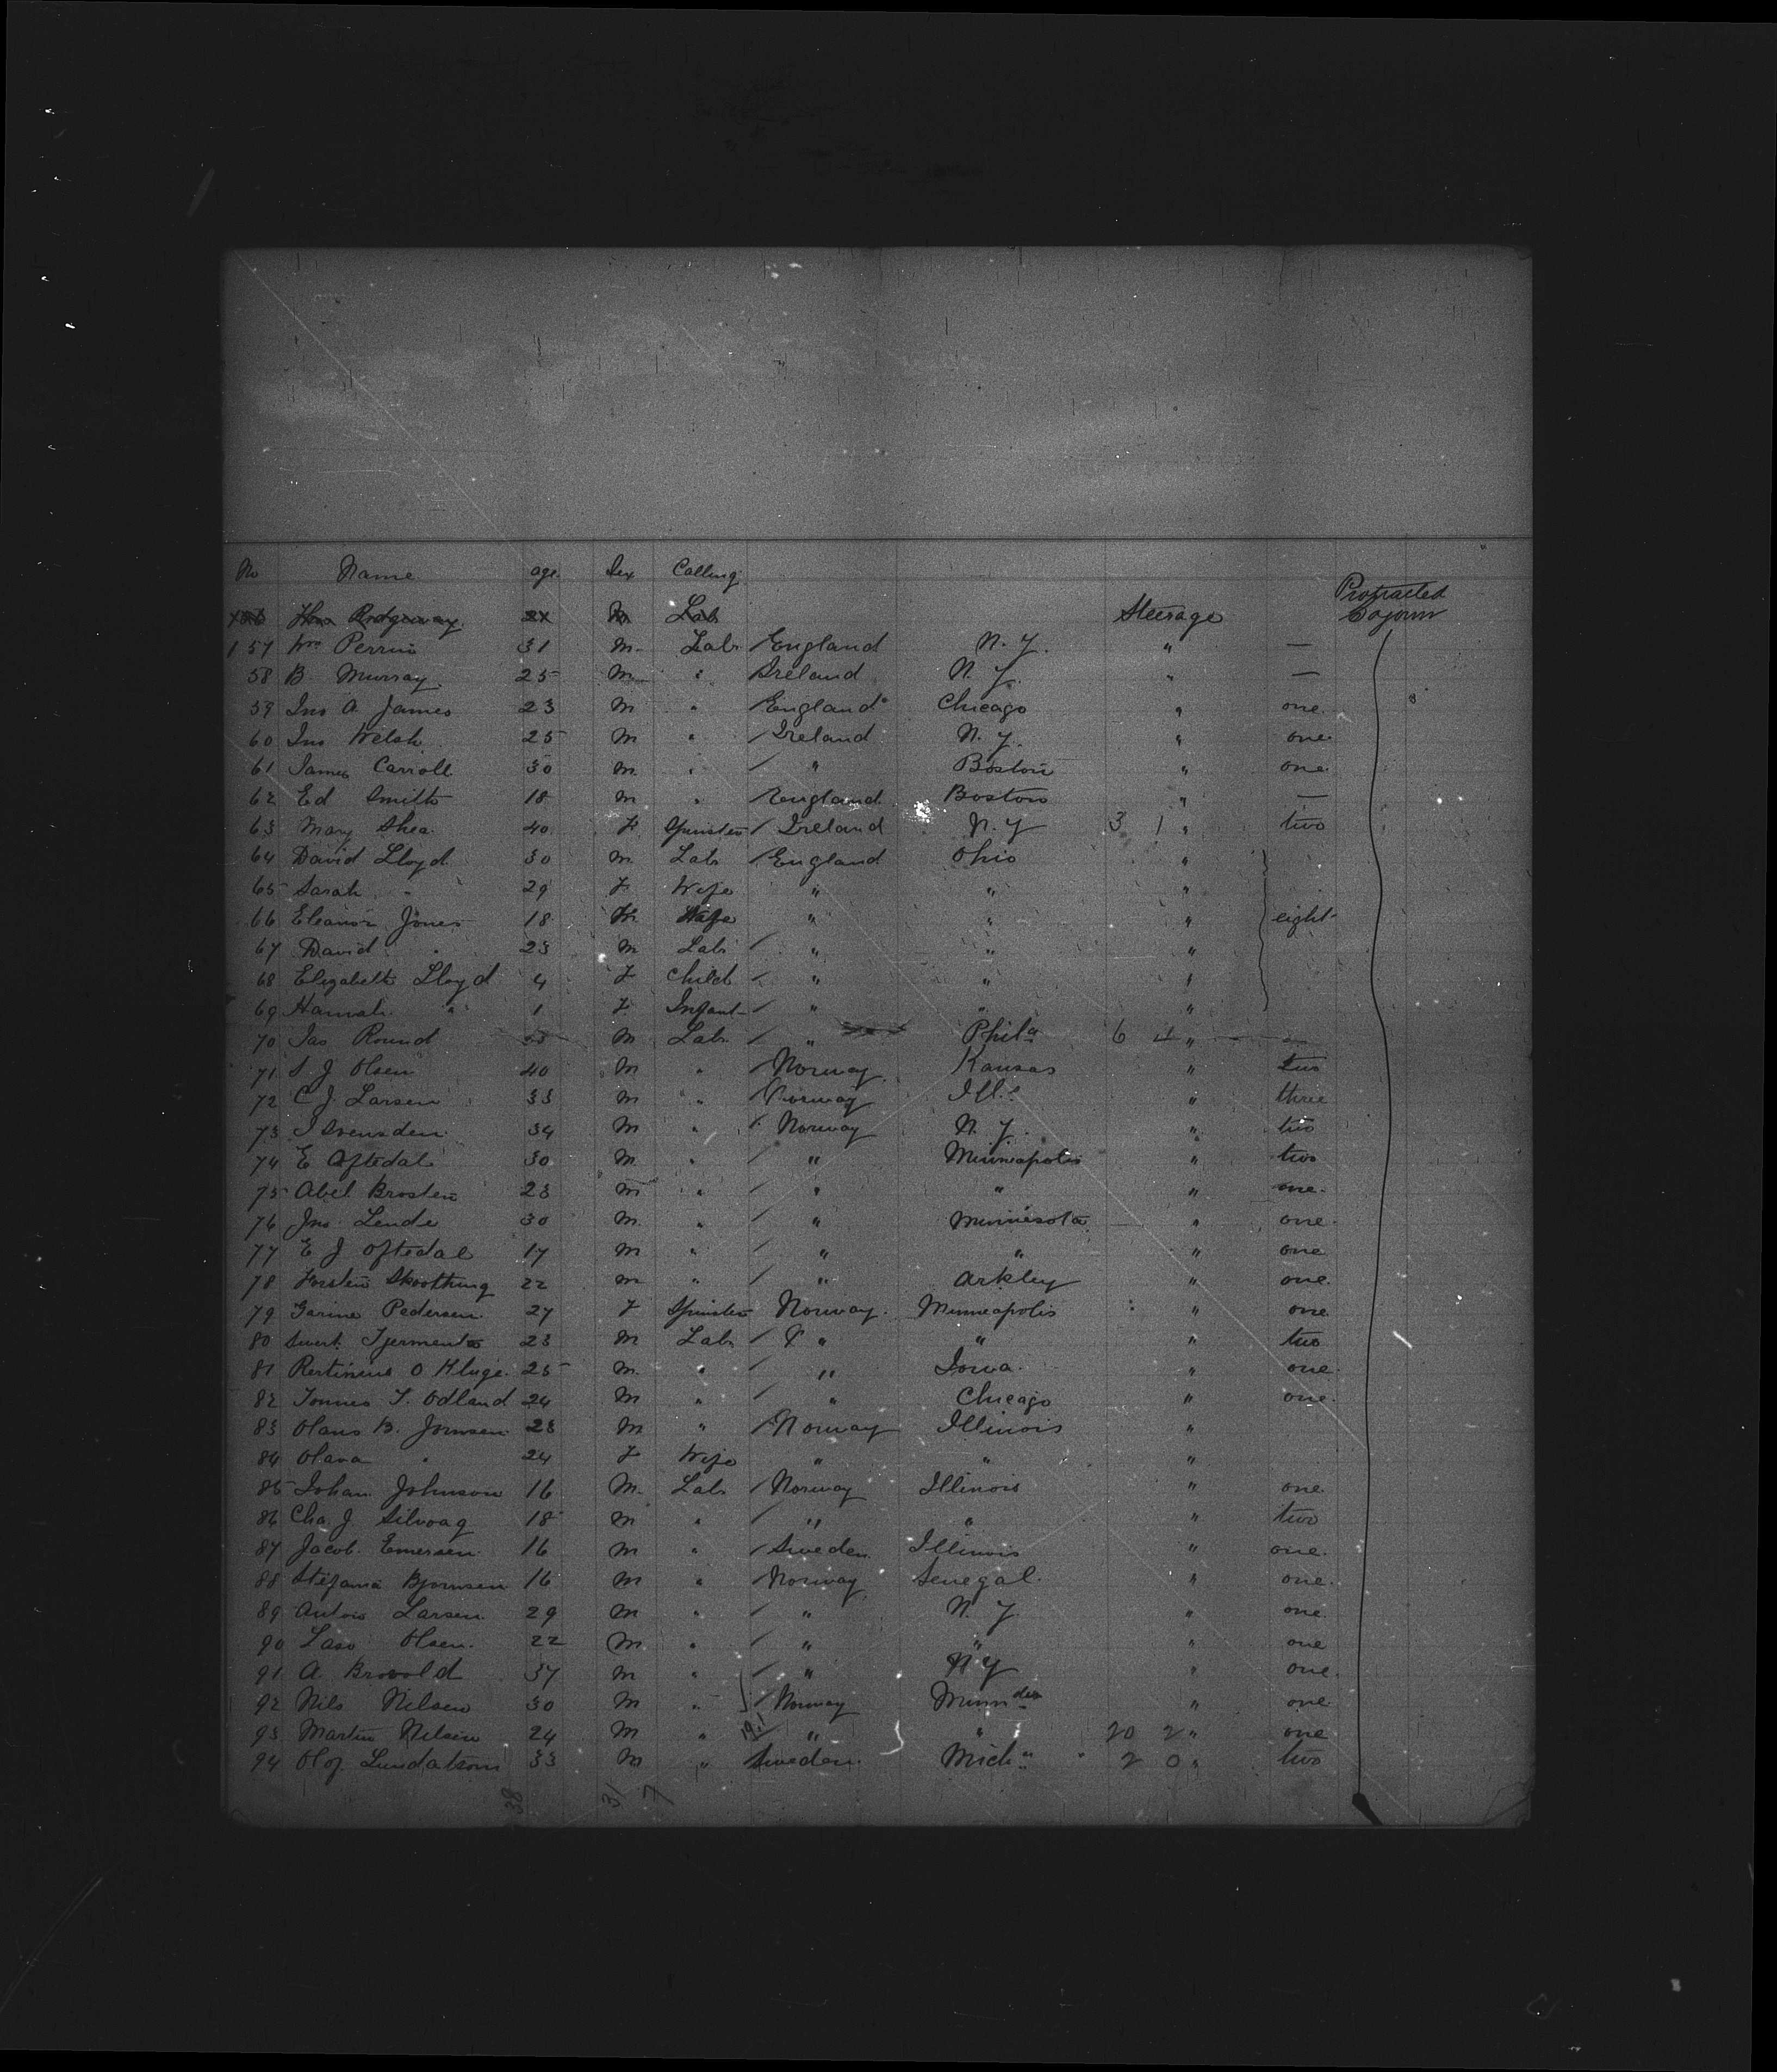 No Name age Sex Calling
Protracted
156 Thos Ridgeway 21 M Lab Steerage Sojourn
157 Wm Perrin 31 M Lab England N.Y. " —
58 B. Murray 25 M " Ireland N.Y. " —
59 Jno A. James 23 M " England Chicago " one
60 Jno Welsh 25 M " Ireland N.Y. " one
61 James Carroll 30 M " " Boston " one
62 Ed Smith 18 M " England Boston " —
63 Mary Shea 40 F Spinster Ireland N.Y 3 1 " two
64 David Lloyd 30 M Lab England Ohio "
65 Sarah " 29 F Wife " " "
66 Eleanor Jones 18 F Wife " " " eight
67 David " 23 M Lab " " "
68 Elizabeth Lloyd 4 F Child " " "
69 Hannah " 1 F Infant " " "
70 Jas Round M Lab " Phila 6 4 " —
71 S J Olsen 40 M " Norway Kansas " two
72 C J. Larsen 33 M " Norway Ills " three
73 J Svensden 34 M " Norway N.Y. " two
74 E Oftedal 30 M " " Minneapolis " two
75 Abel Brosten 23 M " " " " one
76 Jno. Lende 30 M " " Minnesota " one
77 E J Oftedal 17 M " " " " one
78 Torsten Skoothung 22 M " " Arkley " one
79 Garine Pedersen 27 F Spinster Norway Minneapolis " one
80 Sivert 23 M Lab " " " two
81 O Kluge 25 M " " Iowa " one
82 Tonnes T. Odland 24 M " " Chicago " one
83 Olans B. Jornsen 28 M " Norway Illinois "
84 Olava " 24 F Wife " " "
85 Johan Johnson 16 M Lab Norway Illinois " one
86 Cha. J Silvoag 18 M " " " " two
87 Jacob Emersen 16 M " Sweden Illinois " one
88 Stefania Bjornsen 16 M " Norway Senegal " one
89 Anton Larsen 29 M " " N.Y. " one
90 Olsen 22 M " " " " one
91 A. Brovold 37 M " " N Y " one
92 Nils Nilsen 30 M " Norway Minn " one
93 Martin Nilsen 24 M " 19.1 " " 20 2 " one
94 Olof Lundstrom 33 M " Sweden Mich " 2 0 " two
38 31 7